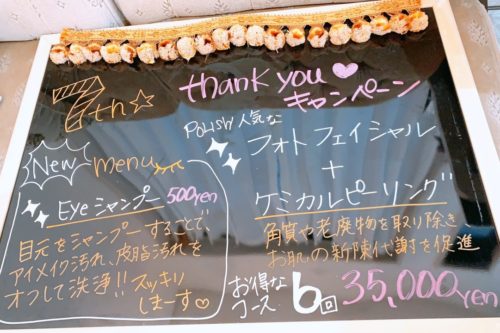 7th☆
thank you♥
キャンペーン
New menu
Eyeシャンプー 500yen
目元をシャンプーすることで、
アイメイク汚れ、皮脂汚れを
オフして洗浄!!スッキリ
しまーす♡
Polish人気な
フォトフェイシャル
+
ケミカルピーリング
角質や老廃物を取り除き
お肌の新陳代謝を促進
お得な
コース 6回 35,000yen